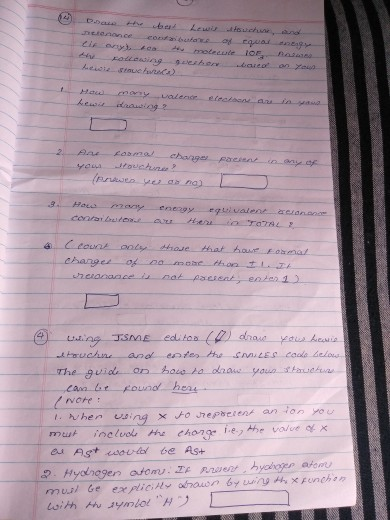 (14) Draw the best Lewis structure, and
resonance contributors of equal energy
(if any), for the molecule IOF3. Answer
the following questions based on your
Lewis structure(s)
1 How many valence electrons are in your
Lewis drawing?
2 Are formal charges present in any of
your structures?
(Answer yes or no)
3. How many energy equivalent resonance
contributors are there in TOTAL?
(count only those that have formal
charges of no more than ±1. If
resonance is not present, enter 1)
(4) using JSME editor ( ) draw your Lewis
structure and enter the SMILES code below
The guide on how to draw your structure
can be found here.
(Note:
1. When using X to represent an ion you
must include the charge i.e., the value of X
as As+ would be As+
2. Hydrogen atoms. If present, hydrogen atoms
must be explicitly drawn by using the X function
with the symbol "H")